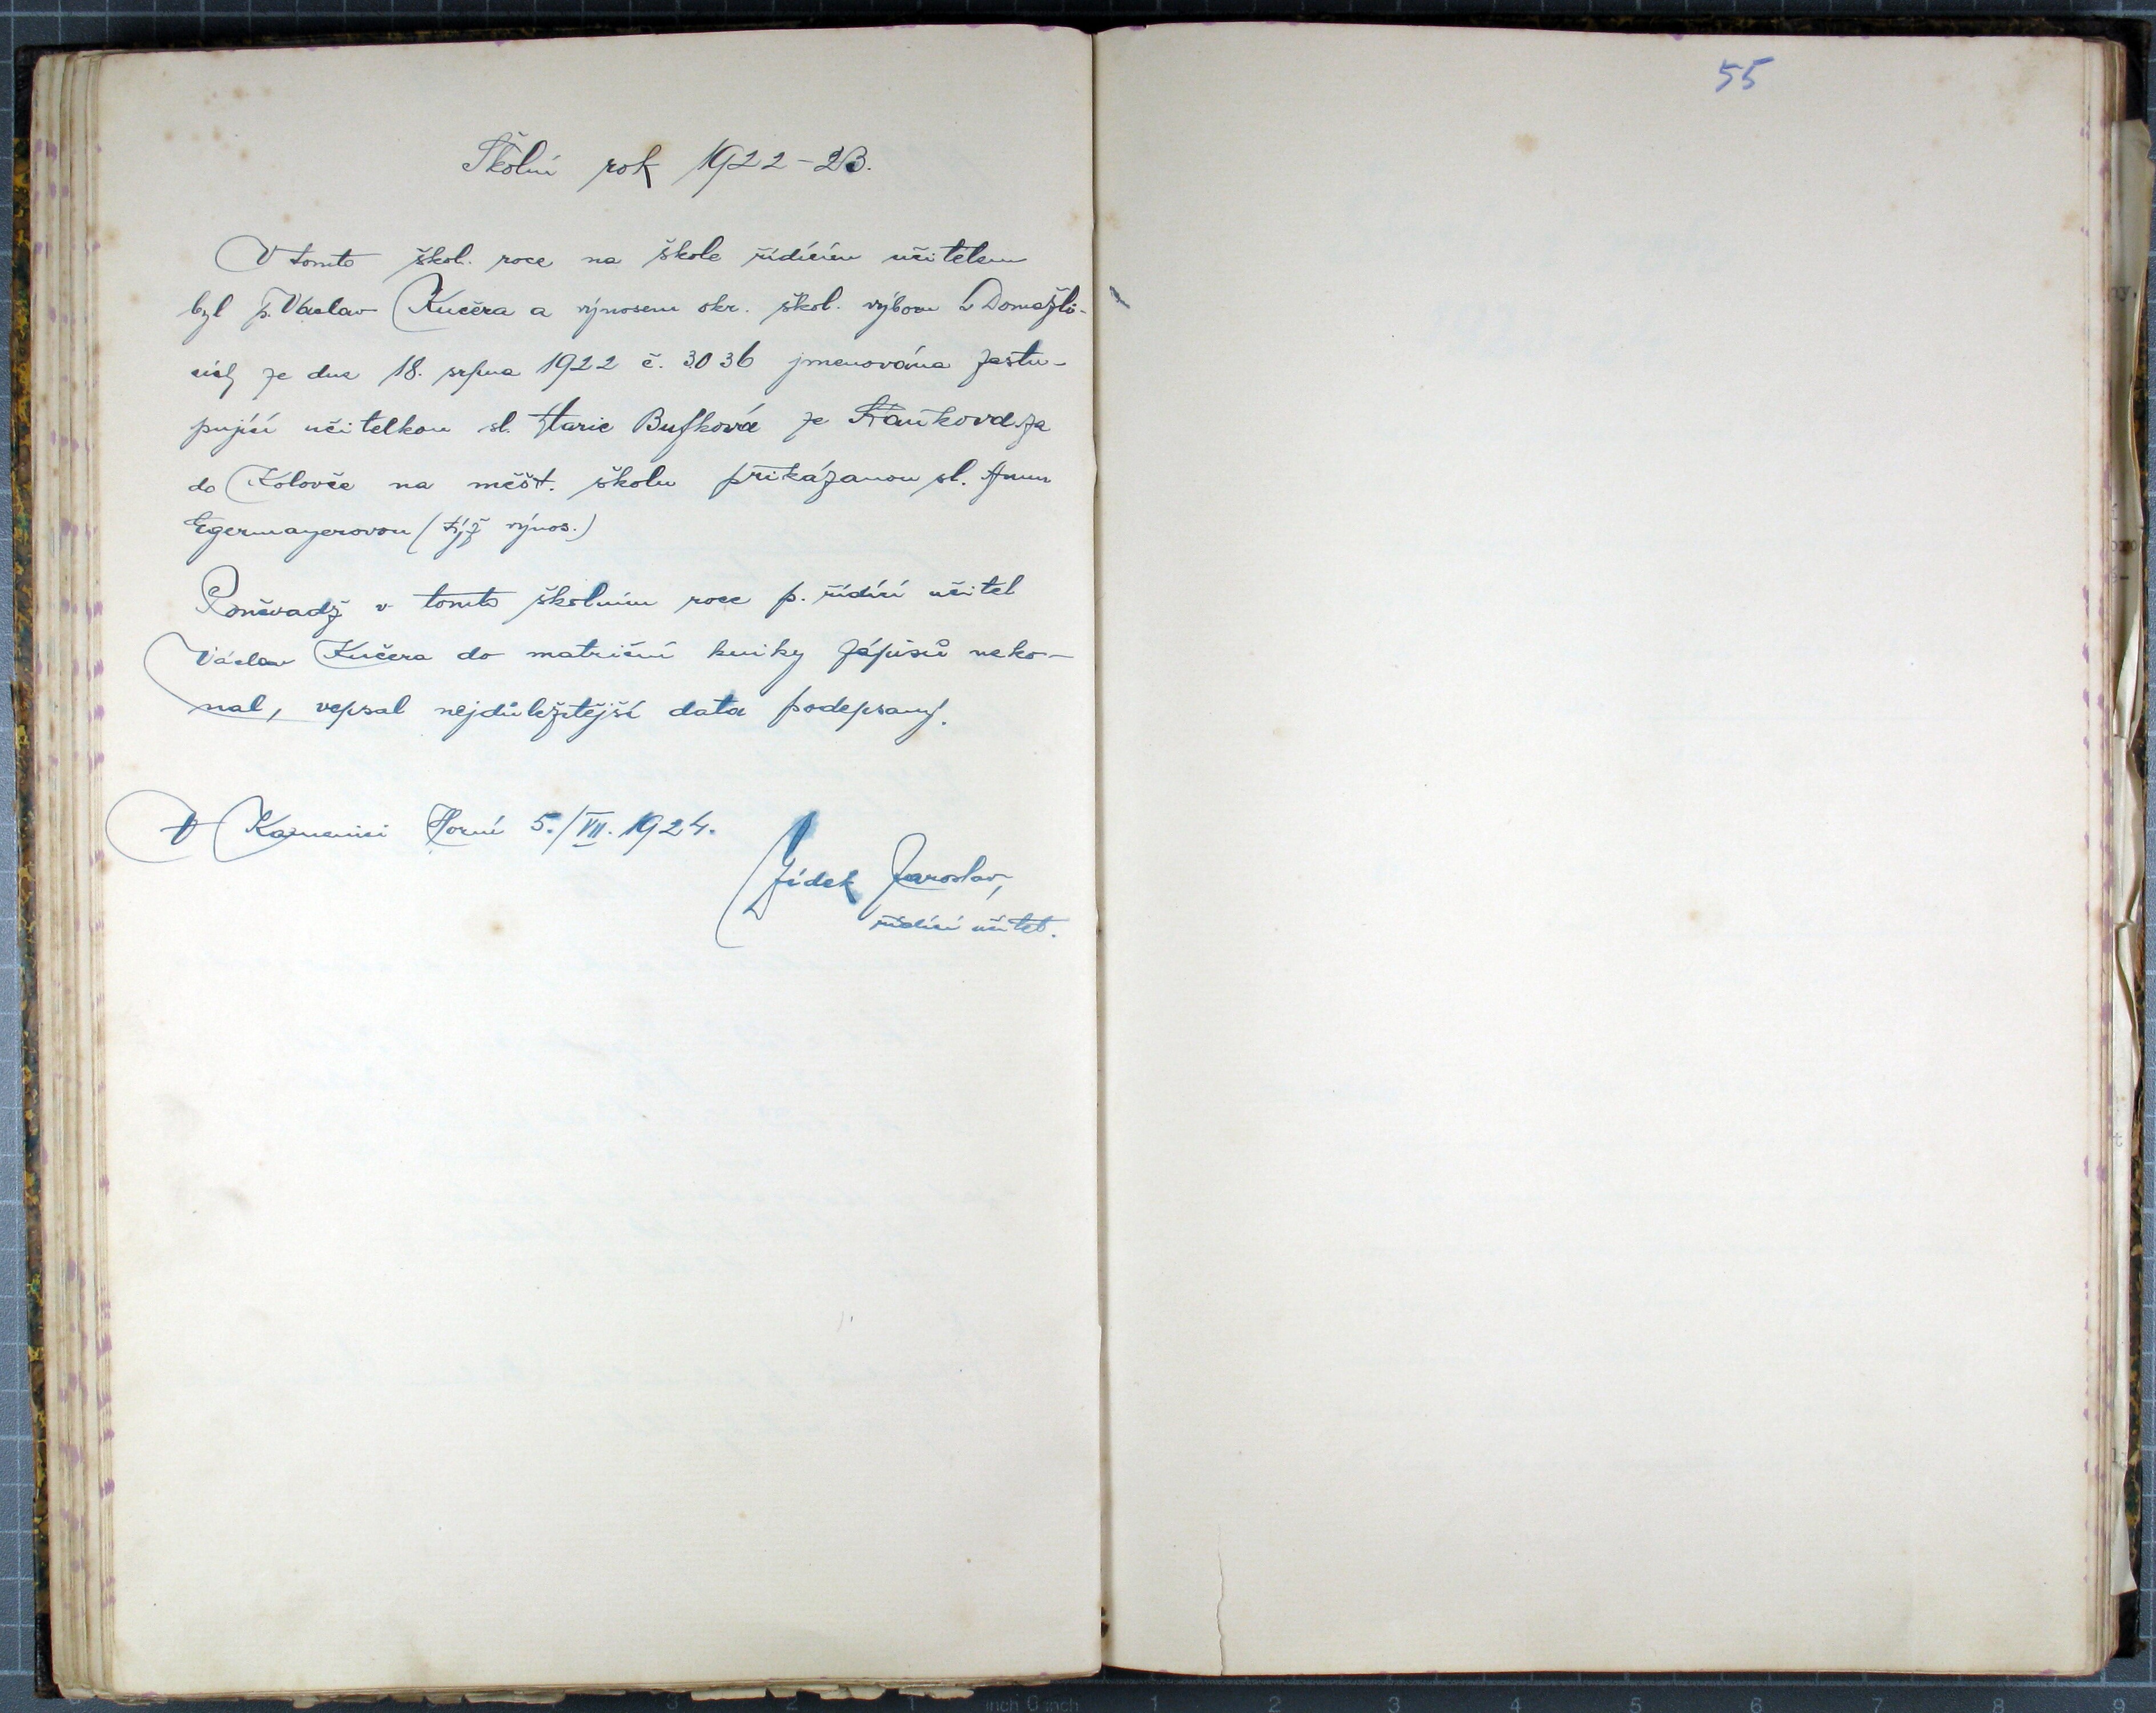 55
Školní rok 1922-23.
V tomto škol. roce na škole řídícím učitelem
byl p. Václav Kučera a výnosem okr. škol. výboru v Domažli-
cích ze dne 18. srpna 1922 č. 3036 jmenována zastu-
pující učitelkou sl. Marie Bufková ze za
do Koloveče na měšť. školu přikázanou sl. Annu
Egermayerovou (týž výnos.)
Poněvadž v tomto školním roce p. řídící učitel
Václav Kučera do matriční knihy zápisů neko-
nal, vepsal nejdůležitější data podepsaný.
V Kamenici Horní 5./VII. 1924.
Jídek Jaroslav,
řídící učitel.